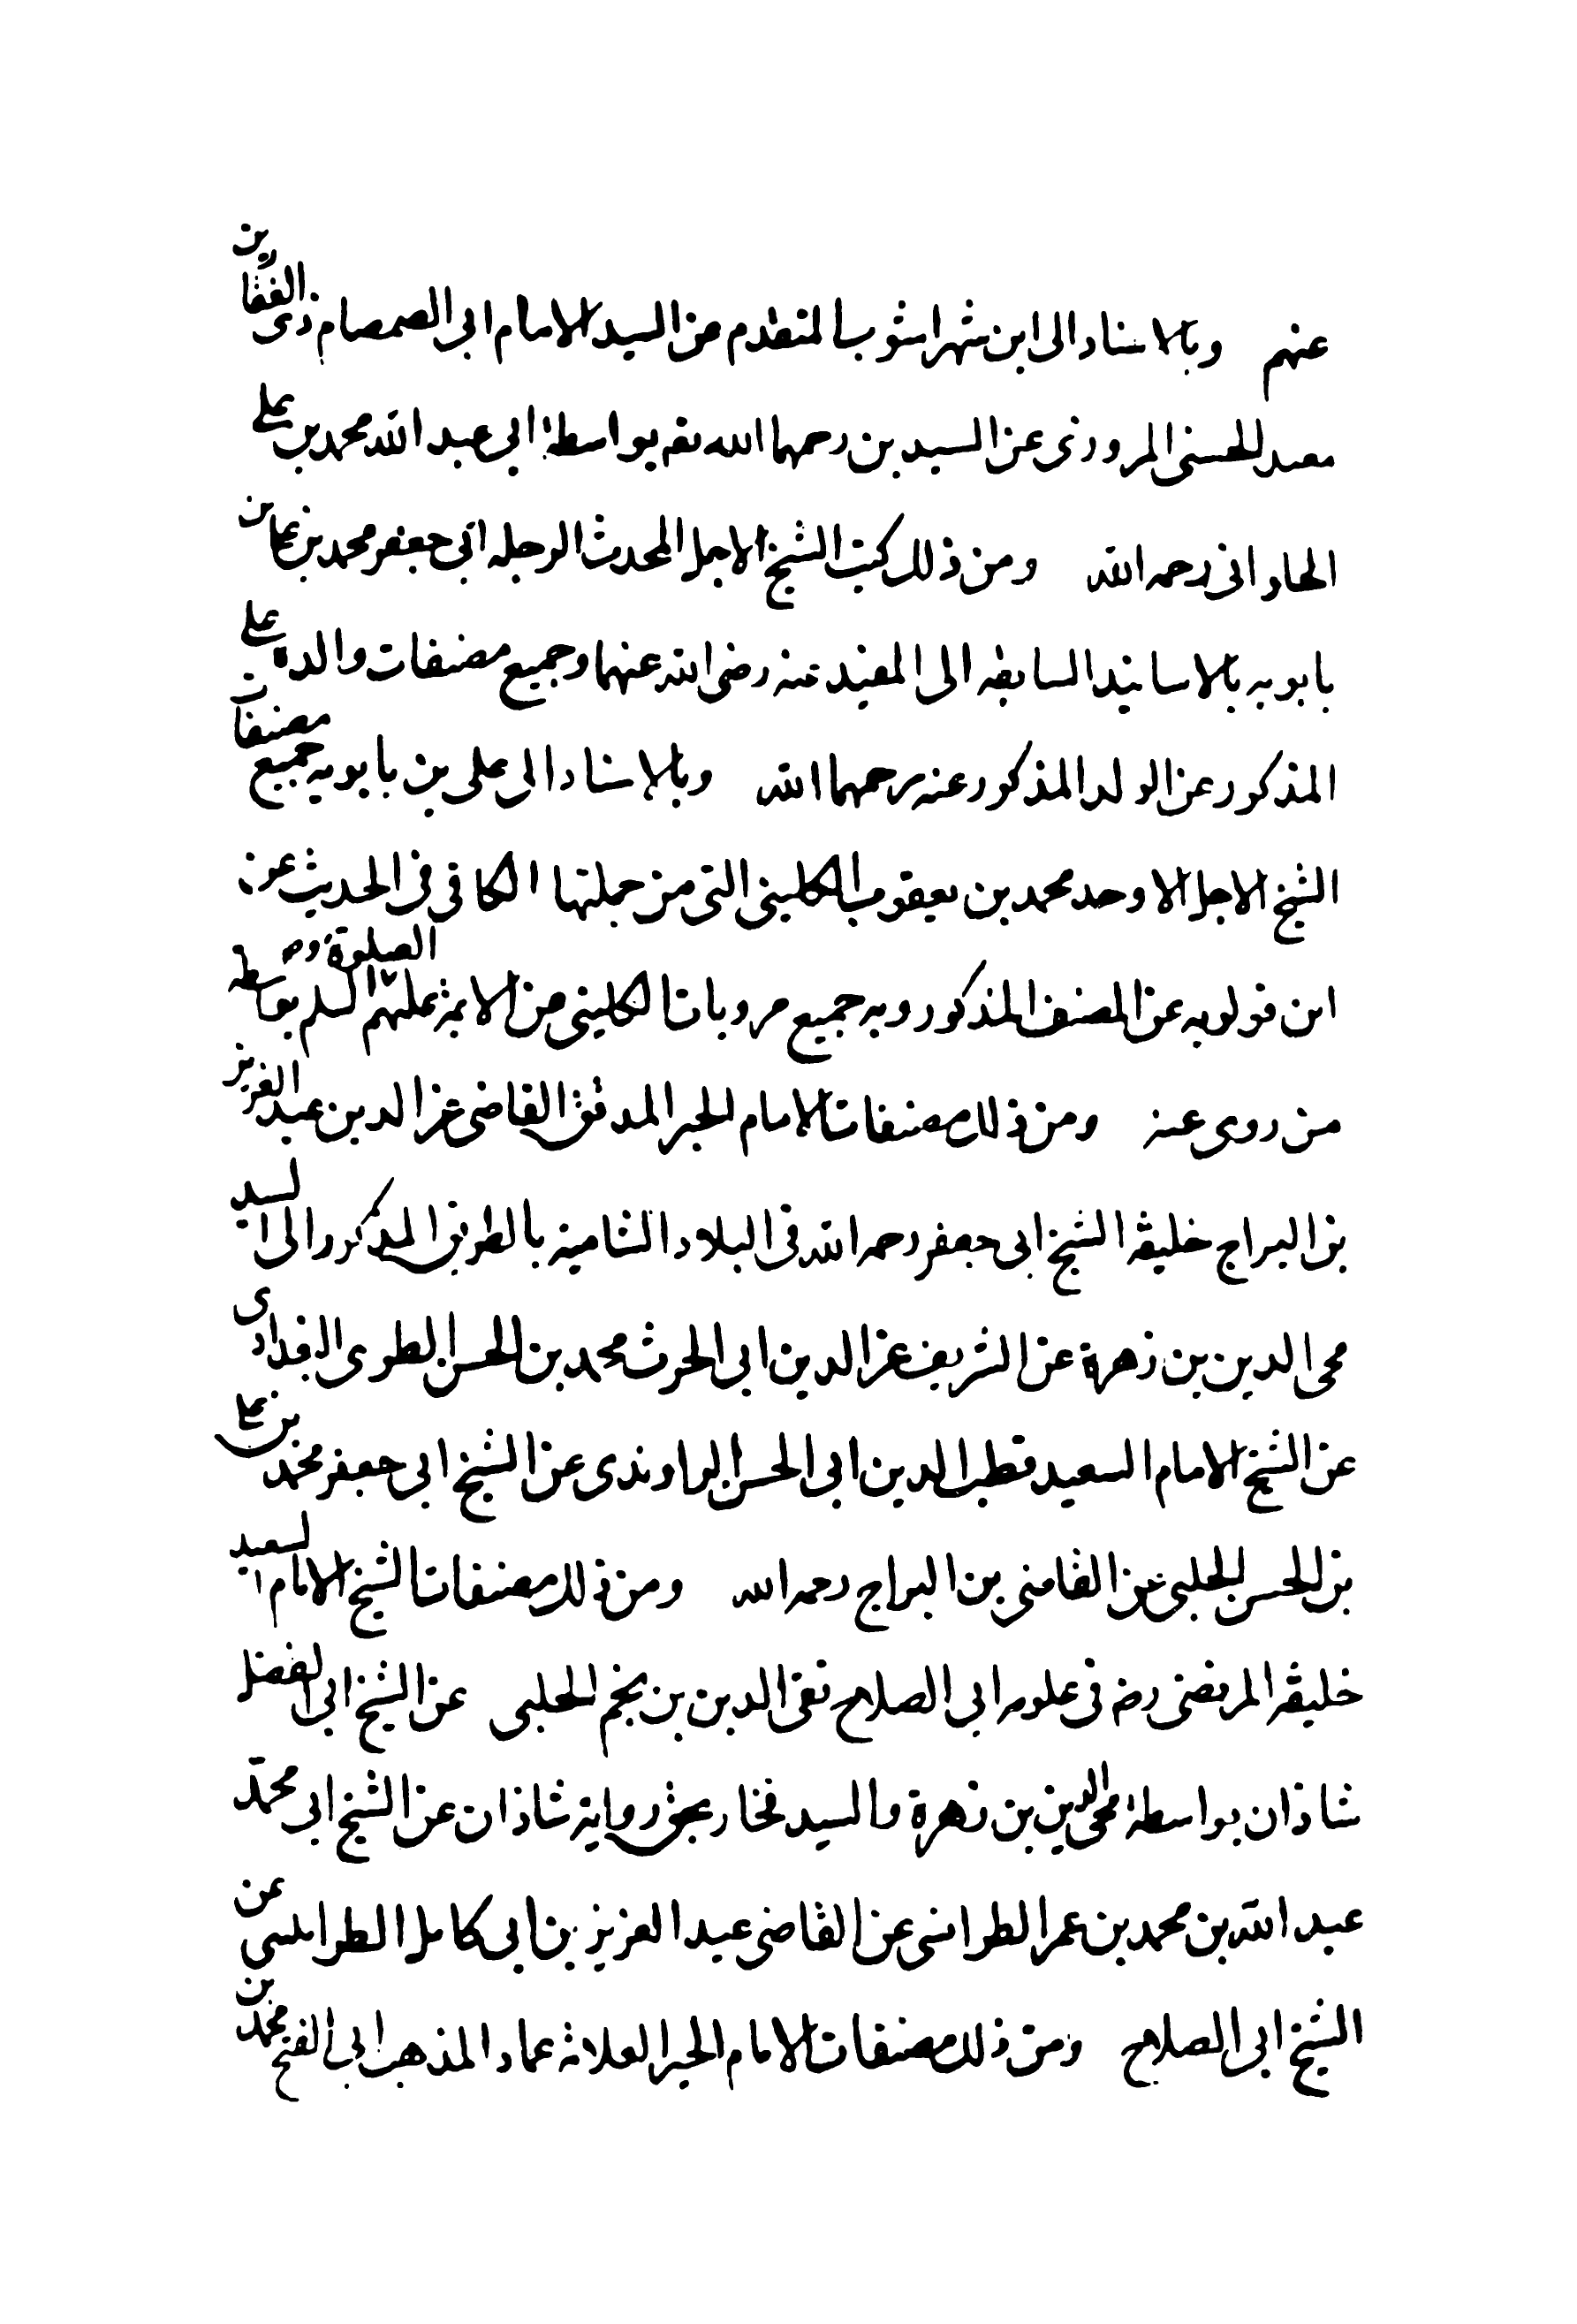 عنهم وبالاسناد الى ابن شهراشوب المتقدم عن السيد الامام ابى الصمصام ذى الفقار بن
معبد الحسنى المروزى عن السيدين رحمهما الله تعه بواسطة ابى عبد الله محمد بن على
الحلوانى رحمه الله ومن ذلك كتب الشيخ الاجل المحدث الرحله ابى جعفر محمد بن على بن
بابويه بالاسانيد السابقه الى المفيد عنه رضى الله عنهما وجميع مصنفات والده على
المذكور عن الولد المذكور عنه رحمهما الله وبالاسناد الى على بن بابويه جميع مصنفات
الشيخ الاجل الاوحد محمد بن يعقوب الكلينى التى من جملتها الكافى فى الحديث عن
ابن قولويه عن المصنف المذكور وبه جميع مرويات الكلينى عن الائمة عليهم الصلوة والسلم بواسطه
من روى عنه ومن ذلك مصنفات الامام الحبر المدقق القاضى عز الدين عبد العزيز
بن البراج خليفة الشيخ ابى جعفر رحمه الله فى البلاد الشامية بالطريق المذكور الى السيد
محى الدين بن زهرة عن الشريف عز الدين ابى الحرث محمد بن الحسن العلوى البغدادى
عن الشيخ الامام السعيد قطب الدين ابى الحسن الراوندى عن الشيخ ابى جعفر محمد بن على
بن الحسن الحلبى عن القاضى بن البراج رحمه الله ومن ذلك مصنفات الشيخ الامام السعيد
خليفة المرتضى رضه فى علومه ابى الصلاح تقى الدين بن نجم الحلبى عن الشيخ ابى الفضل
شاذان بواسطة محى الدين بن زهرة والسيد فخار بحق رواية شاذان عن الشيخ ابى محمد
عبد الله بن محمد بن عمر الطرابلسى عن القاضى عبد العزيز بن ابى كامل الطرابلسى عن
الشيخ ابى الصلاح ومن ذلك مصنفات الامام الحبر العلامة عماد المذهب ابى الفتح محمد بن